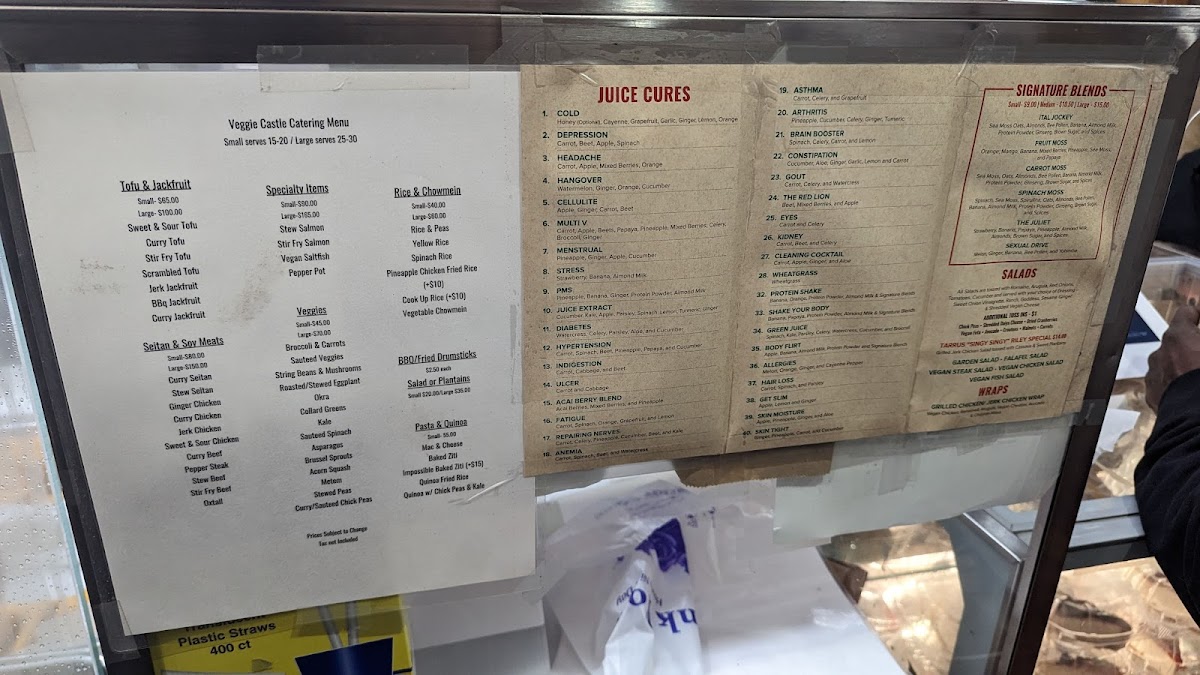 Veggie Castle Catering Menu
Small serves 15-20 / Large serves 25-30
Tofu & Jackfruit
Small- $65.00
Large- $100.00
Sweet & Sour Tofu
Curry Tofu
Stir Fry Tofu
Scrambled Tofu
Jerk Jackfruit
BBq Jackfruit
Curry Jackfruit
Seitan & Soy Meats
Small-$80.00
Large-$150.00
Curry Seitan
Stew Seitan
Ginger Chicken
Curry Chicken
Jerk Chicken
Sweet & Sour Chicken
Curry Beef
Pepper Steak
Stew Beef
Stir Fry Beef
Oxtail
Specialty Items
Small-$90.00
Large-$165.00
Stew Salmon
Stir Fry Salmon
Vegan Saltfish
Pepper Pot
Veggies
Small-$45.00
Large-$70.00
Broccoli & Carrots
Sauteed Veggies
String Beans & Mushrooms
Roasted/Stewed Eggplant
Okra
Collard Greens
Kale
Sauteed Spinach
Asparagus
Brussel Sprouts
Acorn Squash
Metem
Stewed Peas
Curry/Sauteed Chick Peas
Prices Subject to Change
Tax not Included
Rice & Chowmein
Small-$40.00
Large-$60.00
Rice & Peas
Yellow Rice
Spinach Rice
Pineapple Chicken Fried Rice
(+$10)
Cook Up Rice (+$10)
Vegetable Chowmein
BBQ/Fried Drumsticks
$2.50 each
Salad or Plantains
Small $20.00/Large $35.00
Pasta & Quinoa
Mac & Cheese
Baked Ziti
Impossible Baked Ziti (+$15)
Quinoa Fried Rice
Quinoa w/ Chick Peas & Kale
JUICE CURES
1. COLD
Honey (Optional), Cayenne, Grapefruit, Garlic, Ginger, Lemon, Orange
2. DEPRESSION
Carrot, Beet, Apple, Spinach
3. HEADACHE
Carrot, Apple, Mixed Berries, Orange
4. HANGOVER
Watermelon, Ginger, Orange, Cucumber
5. CELLULITE
Apple, Ginger, Carrot, Beet
6. MULTI V
Carrot, Apple, Beets, Papaya, Pineapple, Mixed Berries, Celery,
Broccoli, Ginger
7. MENSTRUAL
Pineapple, Ginger, Apple, Cucumber
8. STRESS
Strawberry, Banana, Almond Milk
9. PMS
Pineapple, Banana, Ginger, Protein Powder, Almond Milk
10. JUICE EXTRACT
Cucumber, Kale, Apple, Parsley, Spinach, Lemon, Turmeric, Ginger
11. DIABETES
Watercress, Celery, Parsley, Aloe, and Cucumber
12. HYPERTENSION
Carrot, Spinach, Beet, Pineapple, Papaya, and Cucumber
13. INDIGESTION
Carrot, Cabbage, and Beet
14. ULCER
Carrot and Cabbage
15. ACAI BERRY BLEND
Acai Berries, Mixed Berries, and Pineapple
16. FATIGUE
Carrot, Spinach, Orange, Grapefruit, and Lemon
17. REPAIRING NERVES
Carrot, Celery, Pineapple, Cucumber, Beet, and Kale
18. ANEMIA
Carrot, Spinach, Beet, and Watergrass
19. ASTHMA
Carrot, Celery, and Grapefruit
20. ARTHRITIS
Pineapple, Cucumber, Celery, Ginger, Turmeric
21. BRAIN BOOSTER
Spinach, Celery, Carrot, and Lemon
22. CONSTIPATION
Cucumber, Aloe, Ginger, Garlic, Lemon and Carrot
23. GOUT
Carrot, Celery, and Watercress
24. THE RED LION
Beet, Mixed Berries, and Apple
25. EYES
Carrot and Celery
26. KIDNEY
Carrot, Beet, and Celery
27. CLEANING COCKTAIL
Carrot, Apple, Ginger, and Aloe
28. WHEATGRASS
Wheatgrass
32. PROTEIN SHAKE
Banana, Orange, Protein Powder, Almond Milk & Signature Blends
33. SHAKE YOUR BODY
Banana, Papaya, Protein Powder, Almond Milk & Signature Blends
34. GREEN JUICE
35. BODY FLIRT
Apple, Banana, Almond Milk, Protein Powder and Signature Blends
36. ALLERGIES
Melon, Orange, Ginger, and Cayenne Pepper
37. HAIR LOSS
Carrot, Spinach, and Parsley
38. GET SLIM
Apple, Lemon and Ginger
39. SKIN MOISTURE
Apple, Pineapple, Ginger, and Aloe
40. SKIN TIGHT
Ginger, Pineapple, Carrot, and Cucumber
SIGNATURE BLENDS
Small- $9.00 | Medium - $10.50 | Large - $15.00
ITAL JOCKEY
Sea Moss, Oats, Almonds, Bee Pollen, Banana, Almond Milk,
Protein Powder, Ginseng, Brown Sugar, and Spices
FRUIT MOSS
Orange, Mango, Banana, Mixed Berries, Pineapple, Sea Moss,
and Papaya
CARROT MOSS
Sea Moss, Oats, Almonds, Bee Pollen, Banana, Almond Milk,
Protein Powder, Ginseng, Brown Sugar, and Spices
SPINACH MOSS
Spinach, Sea Moss, Spirulina, Oats, Almonds, Bee Pollen,
Banana, Almond Milk, Protein Powder, Ginseng, Brown Sugar,
and Spices
THE JULIET
Strawberry, Banana, Papaya, Pineapple, Almond Milk,
Almonds, Brown Sugar, and Spices
SEXUAL DRIVE
Melon, Ginger, Banana, Bee Pollen, and Yohimbe
SALADS
ADDITIONAL TOSS INS - $1
TARRUS "SINGY SINGY" RILEY SPECIAL $14.00
GARDEN SALAD - FALAFEL SALAD
VEGAN STEAK SALAD - VEGAN CHICKEN SALAD
VEGAN FISH SALAD
WRAPS
GRILLED CHICKEN- JERK CHICKEN WRAP
Plastic Straws
400 ct